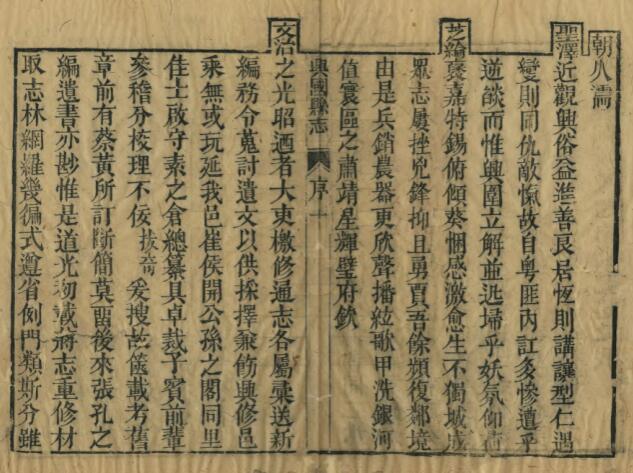 朝久濡
聖澤近觀興俗益進善良居恆則講讓型仁遇
變則同仇敵愾故自粵匪內訌多慘遭乎
逆燄而惟興圍立解並迅埽乎妖氛仰荷
芝綸褒嘉特錫俯傾葵悃感激愈生不獨城成
眾志屢挫兇鋒抑且勇賈吾餘頻復鄰境
由是兵銷農器更欣聲播絃歌甲洗銀河
值寰區之肅靖星輝璧府欽
興國縣志 序 十
文治之光昭迺者大東檄修通志各屬彙送新
編務令蒐討遺文以供採擇兼飭興修邑
乘無或玩延我邑崔侯開公孫之閣同里
佳士啟守素之倉總纂具卓裁子賓前輩
參稽分校理不佞拔爰搜故篋載考舊
章前有蔡黃所訂斷簡莫留後來張孔之
編遺書亦尠惟是道光初載蔣志重修材
取志林網羅幾徧式遵省例門類斯分雖